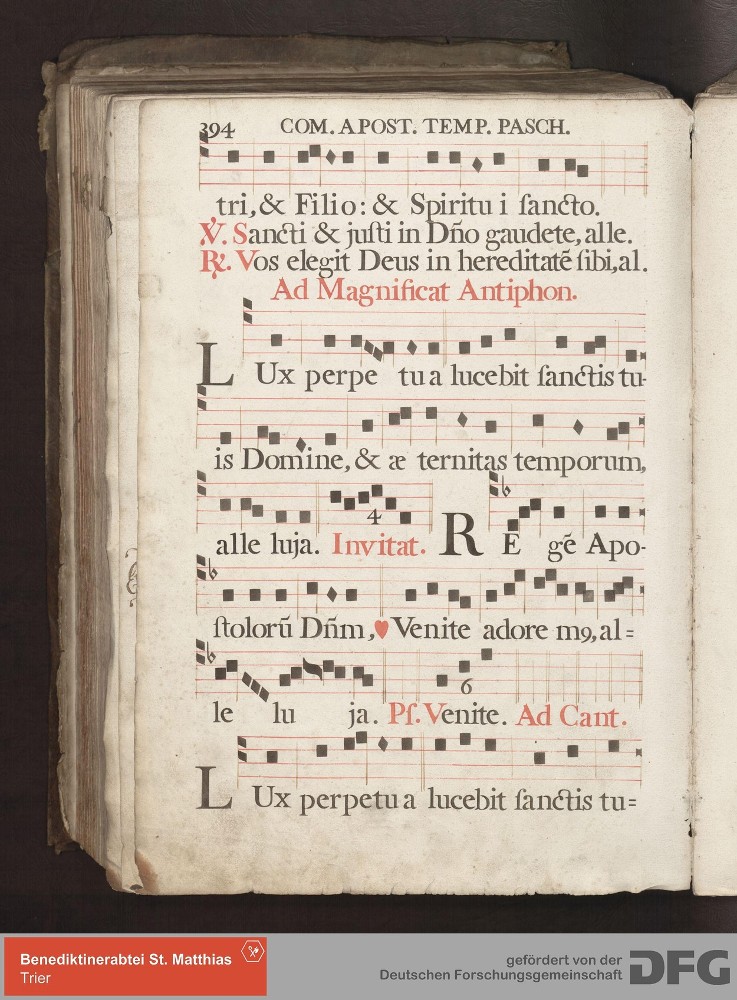 394 COM. APOST. TEMP. PASCH.
tri, & Filio: & Spiritu i ſancto.
℣. Sancti & juſti in Dño gaudete, alle.
℟. Vos elegit Deus in hereditatē ſibi, al.
Ad Magnificat Antiphon.
LUx perpe tua lucebit ſanctis tu-
is Domine, & æ ternitas temporum,
4
alle luja. Invitat. RE gē Apo-
ſtolorū Dñm, Venite adore m9, al=
6
le lu ja. Pſ. Venite. Ad Cant.
LUx perpetua lucebit ſanctis tu=
Benediktinerabtei St. Matthias
Trier
gefördert von der
Deutschen Forschungsgemeinschaft
DFG